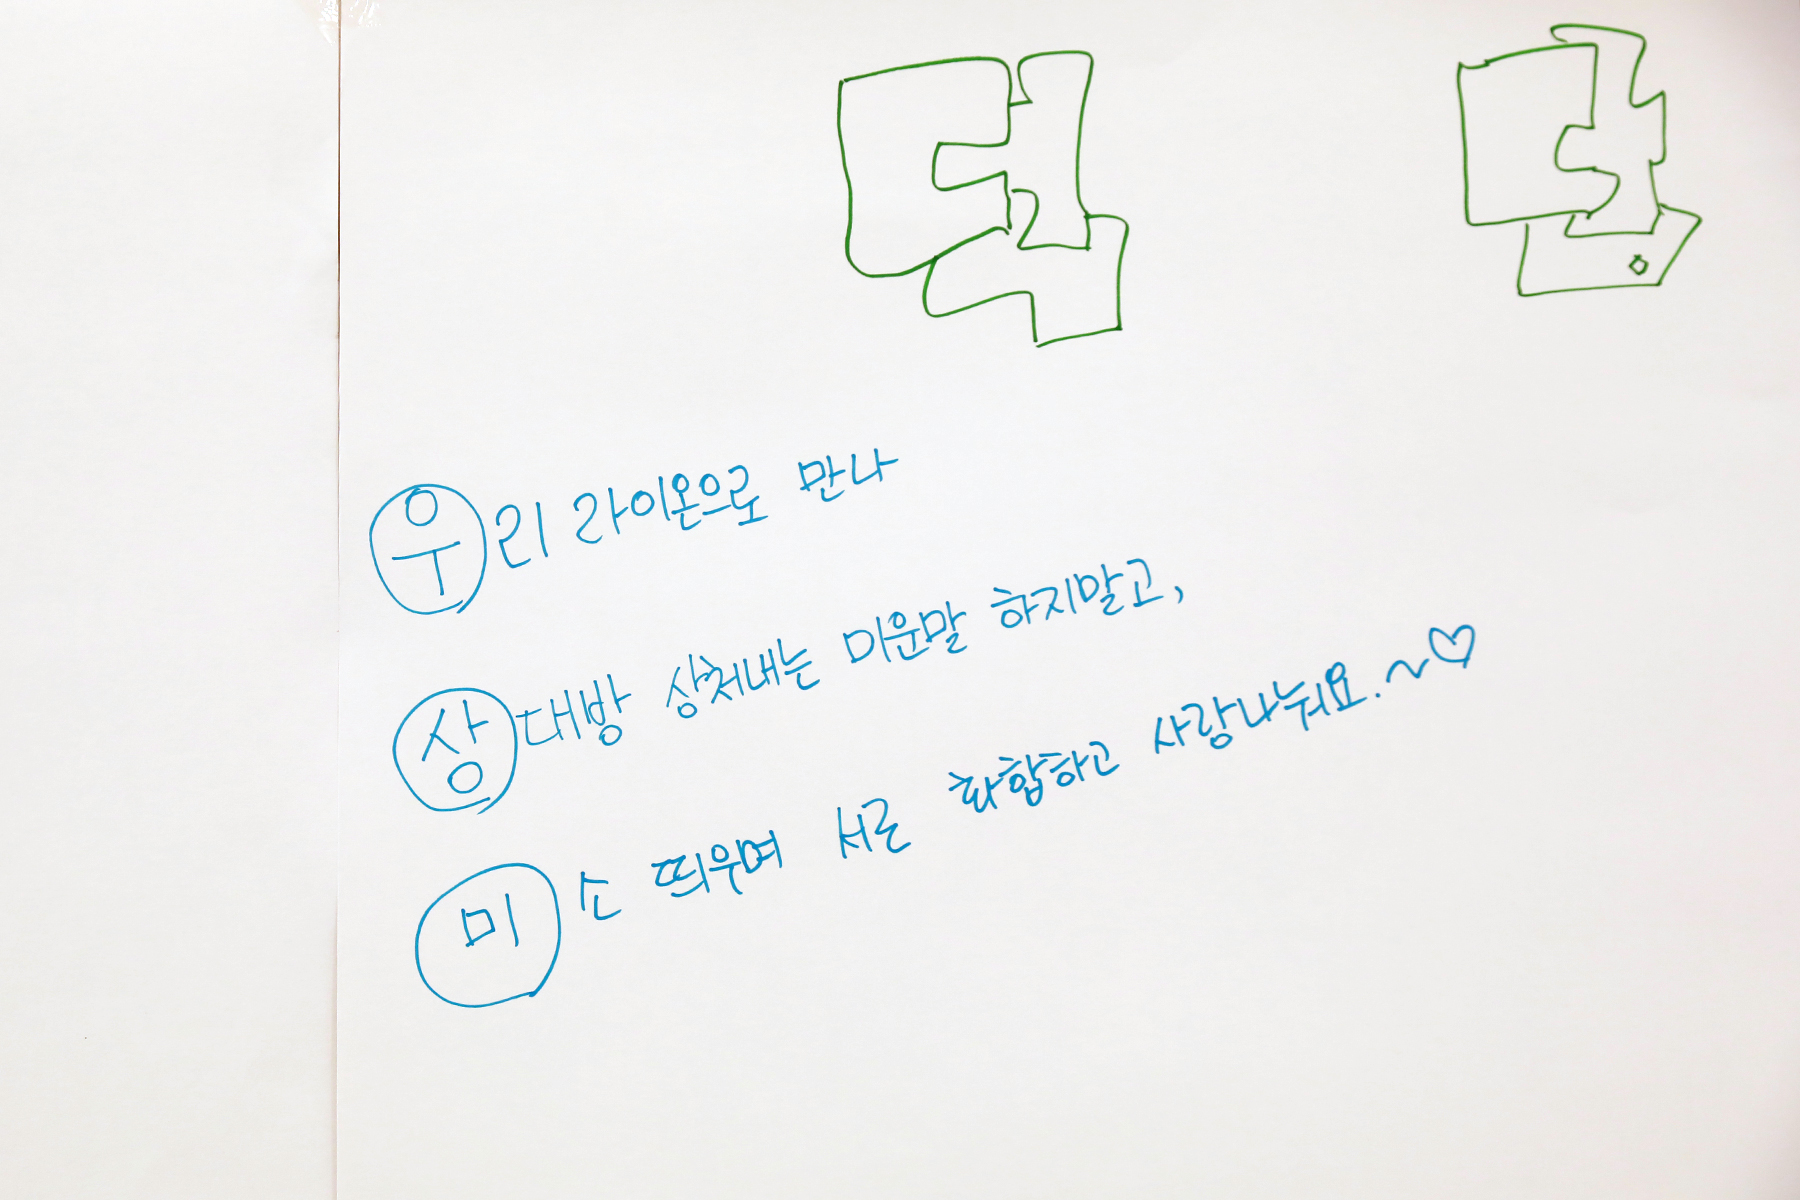 우리 라이온으로 만나
상대방 상처내는 미운말 하지말고,
미소 띄우며 서로 화합하고 사랑나눠요.~♡